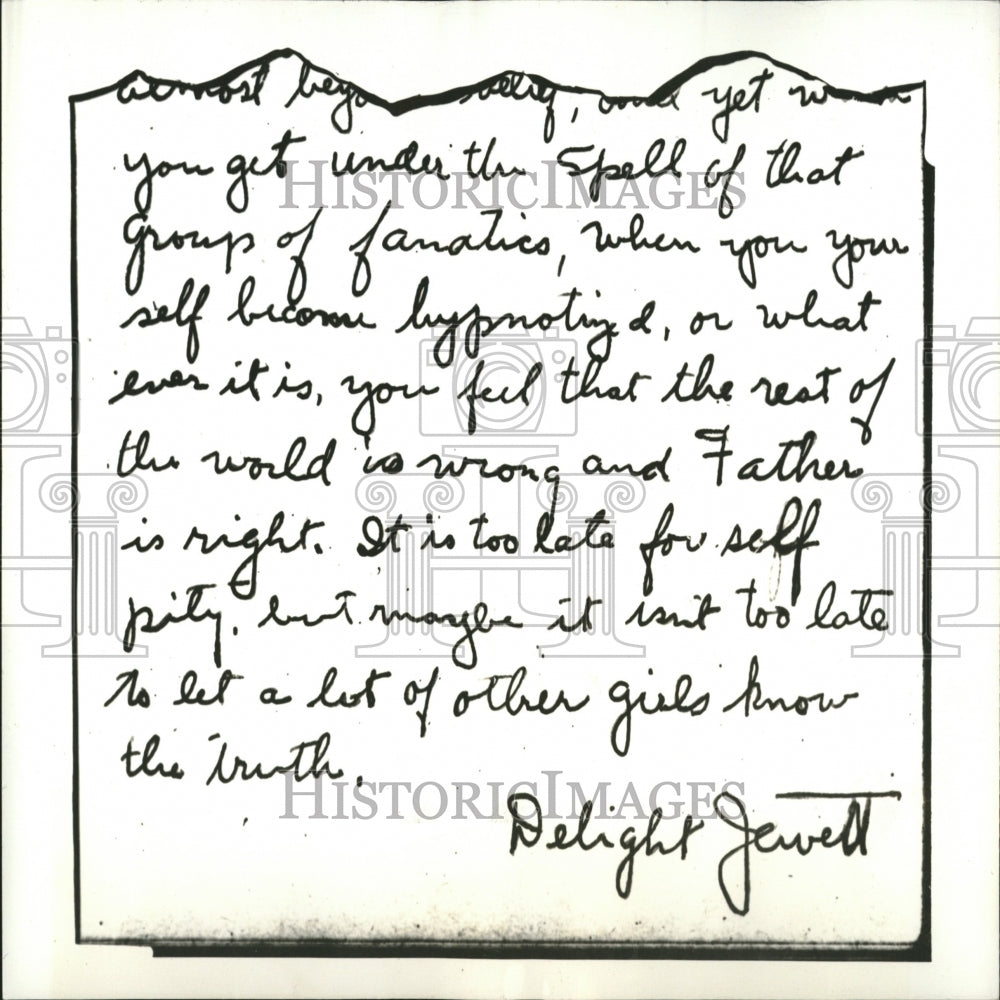 almost beyond belief, and yet when
you get under the Spell of that
Group of fanatics, when you your
self become hypnotized, or what
ever it is, you feel that the rest of
the world is wrong and Father
is right. It is too late for self
pity, but maybe it isn't too late
to let a lot of other girls know
the truth.
Delight Jewett
HISTORICIMAGES
HISTORICIMAGES